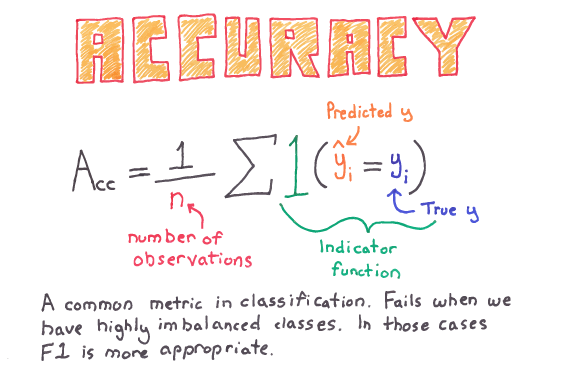 ACCURACY
Predicted y
Acc = 1/n ∑ 1(ŷᵢ = yᵢ)
True y
number of
observations
Indicator
function
A common metric in classification. Fails when we
have highly imbalanced classes. In those cases
F1 is more appropriate.